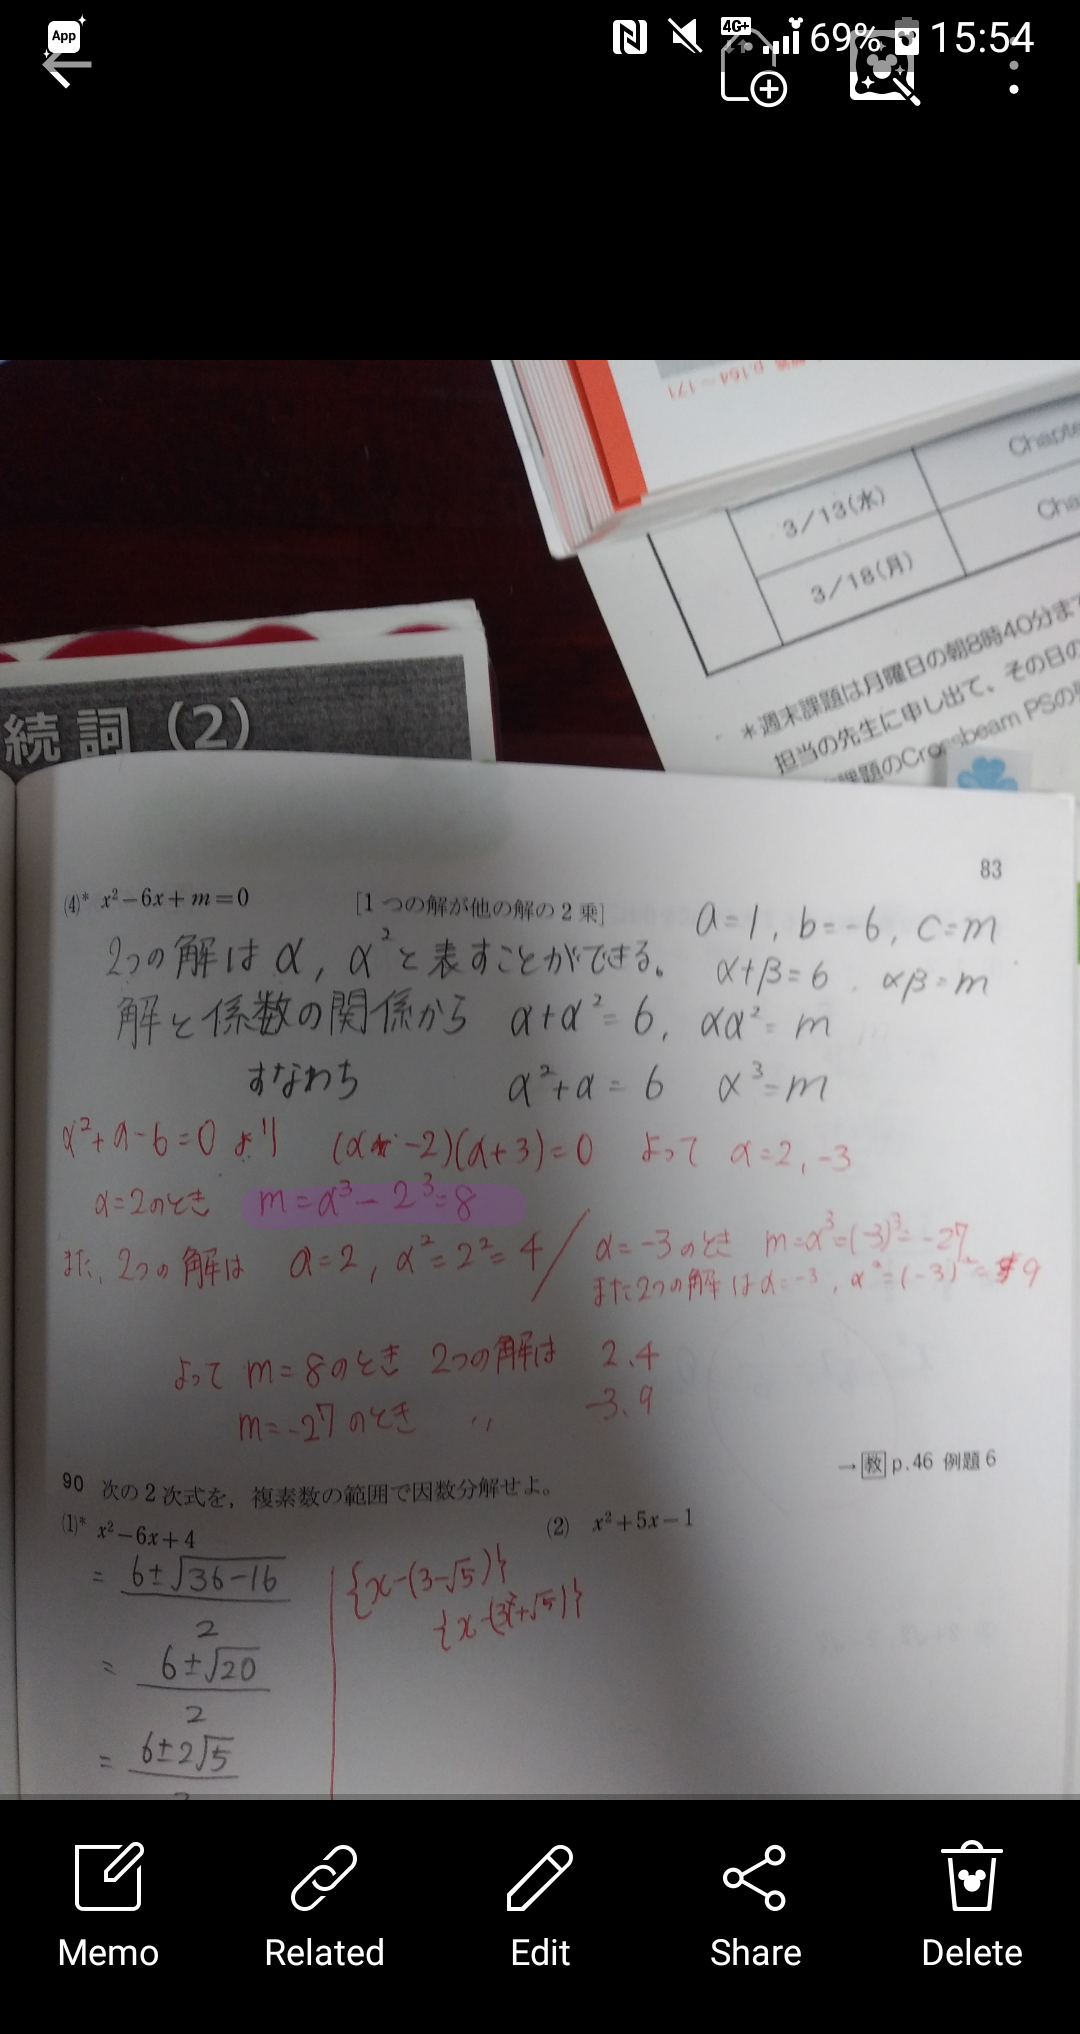 App
4G+
69%
15:54
p.164～171
Chapte
3/13(水)
Cha
3/18(月)
*週末課題は月曜日の朝8時40分まで
担当の先生に申し出て、その日の
課題のCrossbeam PSの
続詞(2)
83
(4)* x²−6x+m=0 [1つの解が他の解の2乗] a=1, b=-6, c=m
2つの解はα, α²と表すことができる。 α+β=6. αβ=m
解と係数の関係から α+α²=6, αα²=m
すなわち α²+α=6 α³=m
α²+α-6=0より (α-2)(α+3)=0 よって α=2,-3
α=2のとき m=α³-2³=8
また、2つの解は α=2, α²=2²=4 / α=-3のとき m=α³=(-3)³=-27
また2つの解はα=-3, α²=(-3)²=9
よって m=8のとき 2つの解は 2.4
m=-27のとき 〃 -3.9
→教 p.46 例題6
90 次の2次式を，複素数の範囲で因数分解せよ。
(1)* x²−6x+4 (2) x²+5x−1
= 6±√36-16 / 2
{x-(3-√5)}
{x-(3+√5)}
= 6±√20 / 2
= 6±2√5
Memo
Related
Edit
Share
Delete